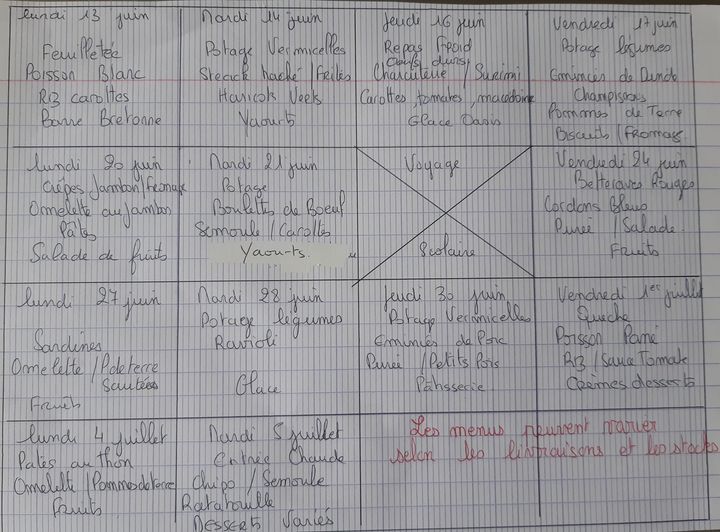 lundi 13 juin
Feuilletée
Poisson Blanc
Riz carottes
Barre Bretonne
Mardi 14 juin
Potage Vermicelles
Steack haché / Frites
Haricots Verts
Yaourts
Jeudi 16 juin
Repas Froid
Oeufs durs,
Charcuterie / Surimi
Carottes, tomates, macédoine
Glace Oasis
Vendredi 17 juin
Potage légumes
Emincés de Dinde
Champignons
Pommes de Terre
Biscuits / Fromage
lundi 20 juin
Crêpes Jambon/Fromage
Omelette au Jambon
Pâtes
Salade de fruits
Mardi 21 juin
Potage
Boulettes de Boeuf
Semoule / Carottes
Yaourts.
Voyage
Scolaire
Vendredi 24 juin
Betteraves Rouges
Cordons Bleus
Purée / Salade
Fruits
lundi 27 juin
Sardines
Omelette / P de terre
Sautées
Fruits
Mardi 28 juin
Potage légumes
Ravioli
Glace
Jeudi 30 juin
Potage Vermicelles
Emincés de Porc
Purée / Petits Pois
Pâtisserie
Vendredi 1er juillet
Quiche
Poisson Pané
Riz / Sauce Tomate
Crèmes desserts
lundi 4 juillet
Pates au thon
Omelette / Pommes de terre
Fruits
Mardi 5 juillet
Entrée Chaude
Chipo / Semoule
Ratatouille
Desserts Variés
Les menus peuvent varier
selon les livraisons et les stocks